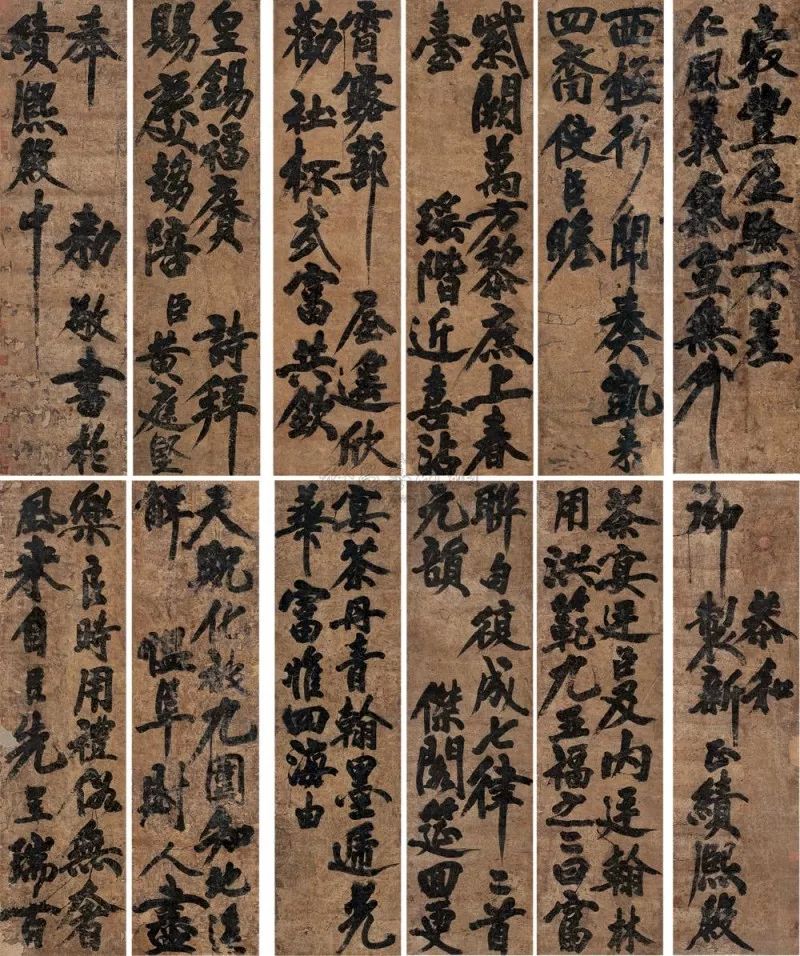 恭和
御製新正績熙殿
茶宴廷臣及内廷翰林
用洪範九五福之二曰富
聯句復成七律二首
元韻 傑閣筵回更
宴茶丹青翰墨遞光
華 富惟四海由
天貺化被九圍知此進
解 慍阜財人盡
樂良時用禮俗無奢
風來自足先呈瑞百
穀豐應驗不差
仁風義氣宣無外
西極行聞奏凱來
四裔使臣瞻
紫闕萬方黎庶上春
臺 綏階近喜沾
霄露蔀屋遥欣
勸社杯式富共欽
皇錫福賡 詩拜
賜慶趨陪臣黃庭堅
奉 敕敬書於
績熙殿中